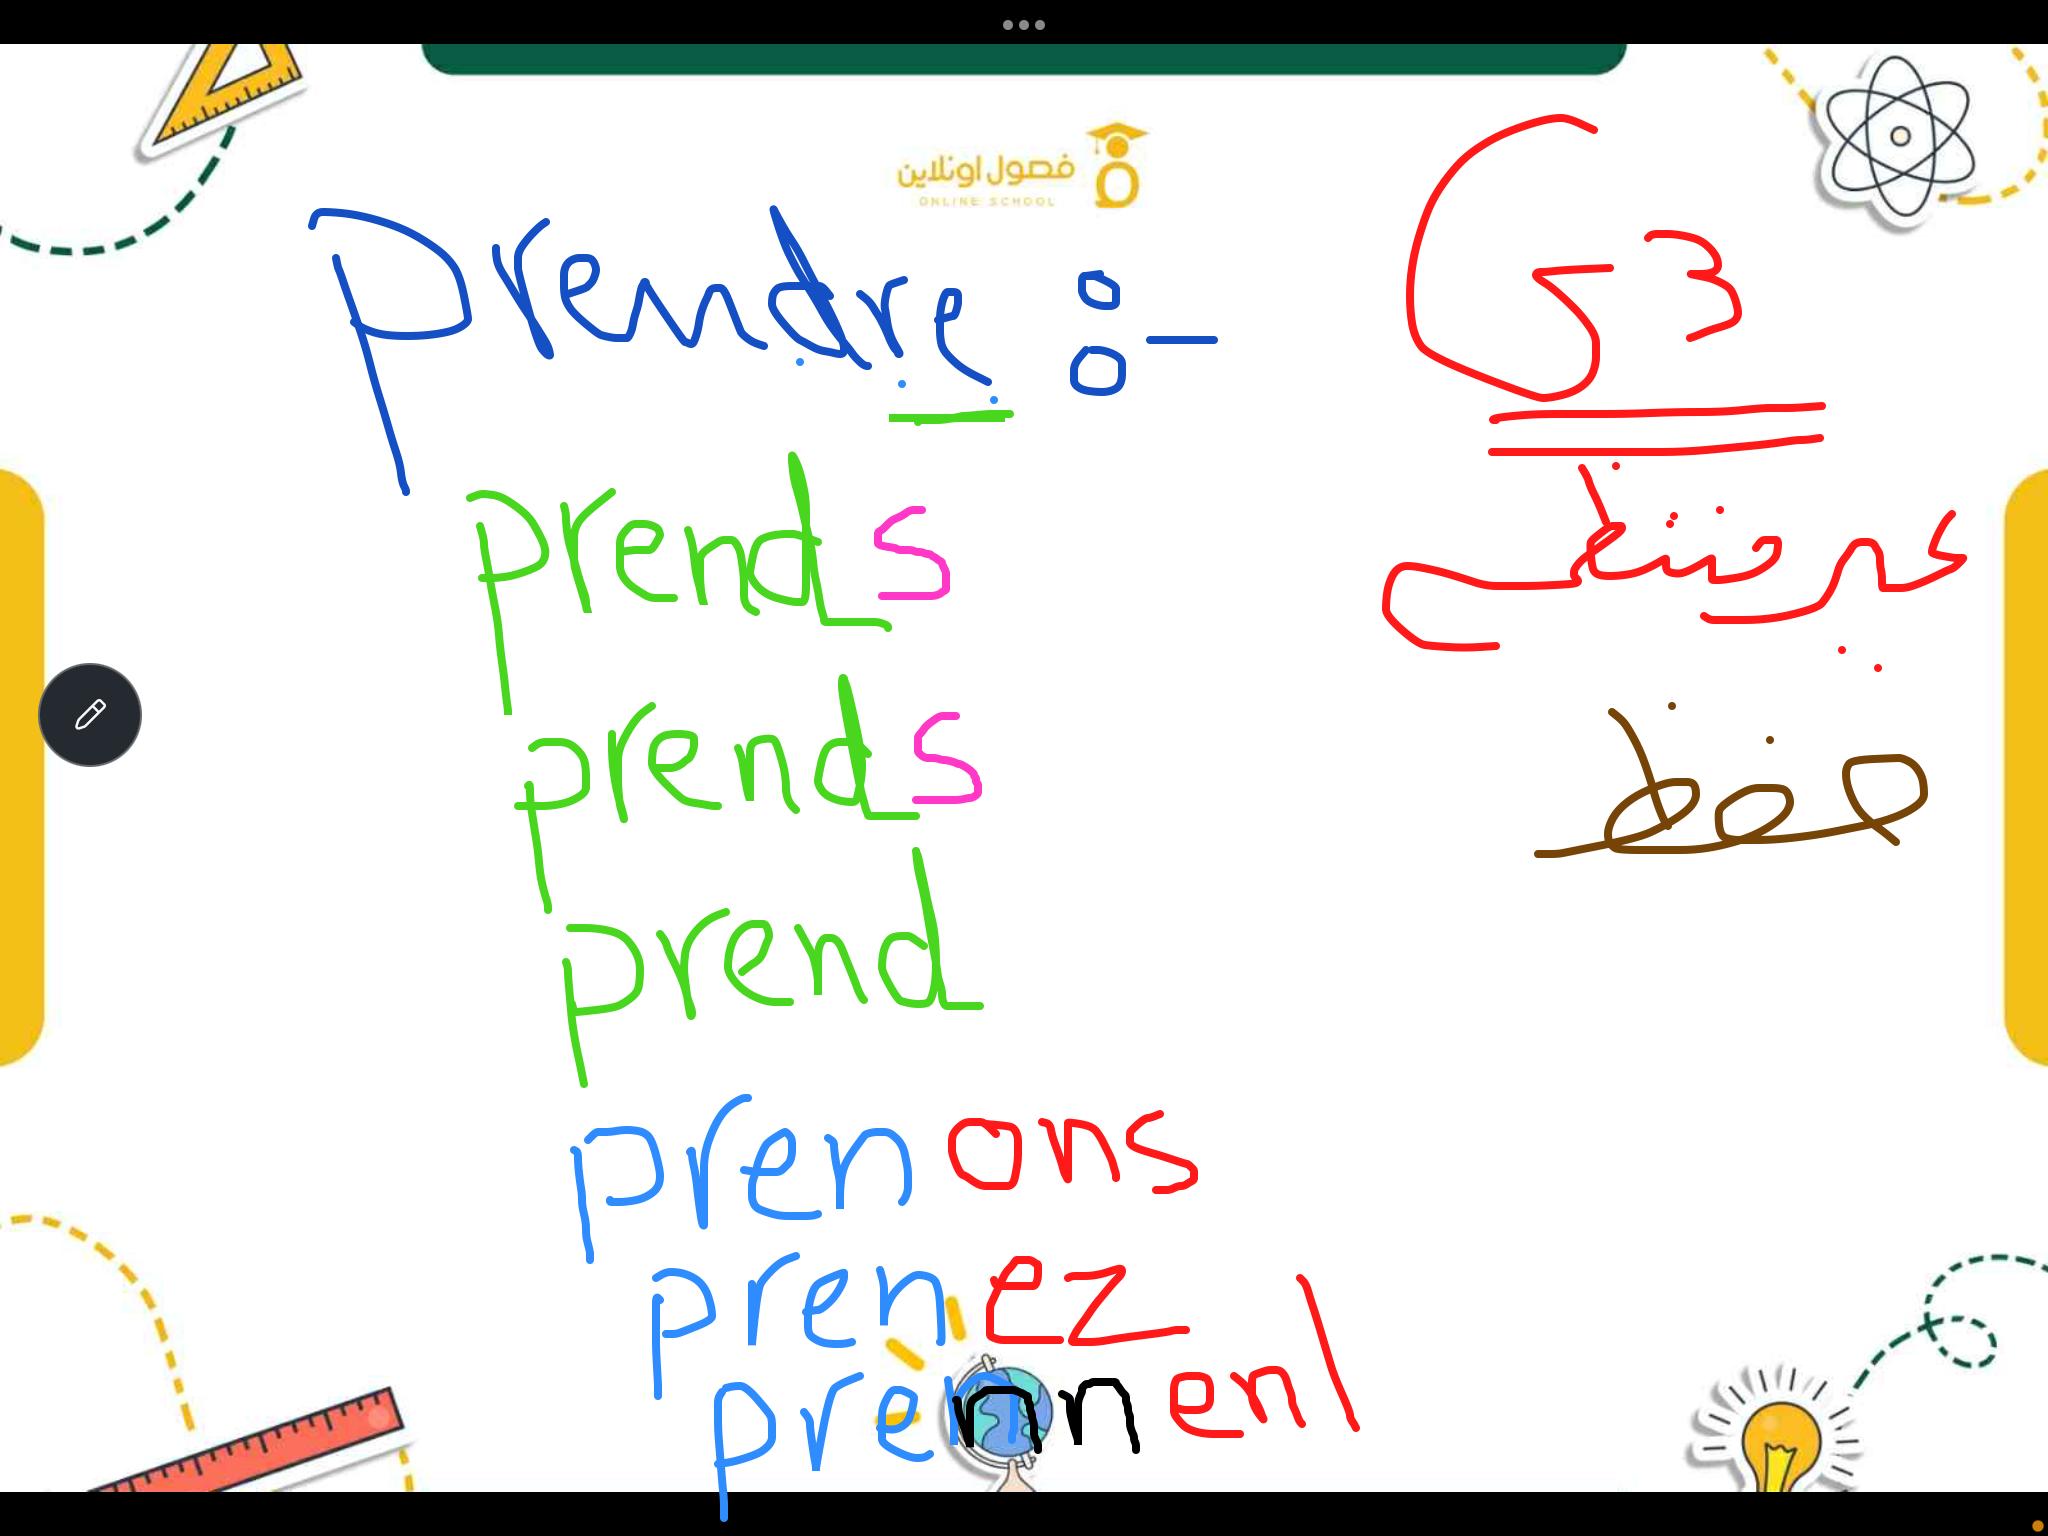 فصول اونلاين
ONLINE SCHOOL
Prendre :-
G3
غير منتظم
prends
prends
حفظ
prend
prenons
prenez
prennent